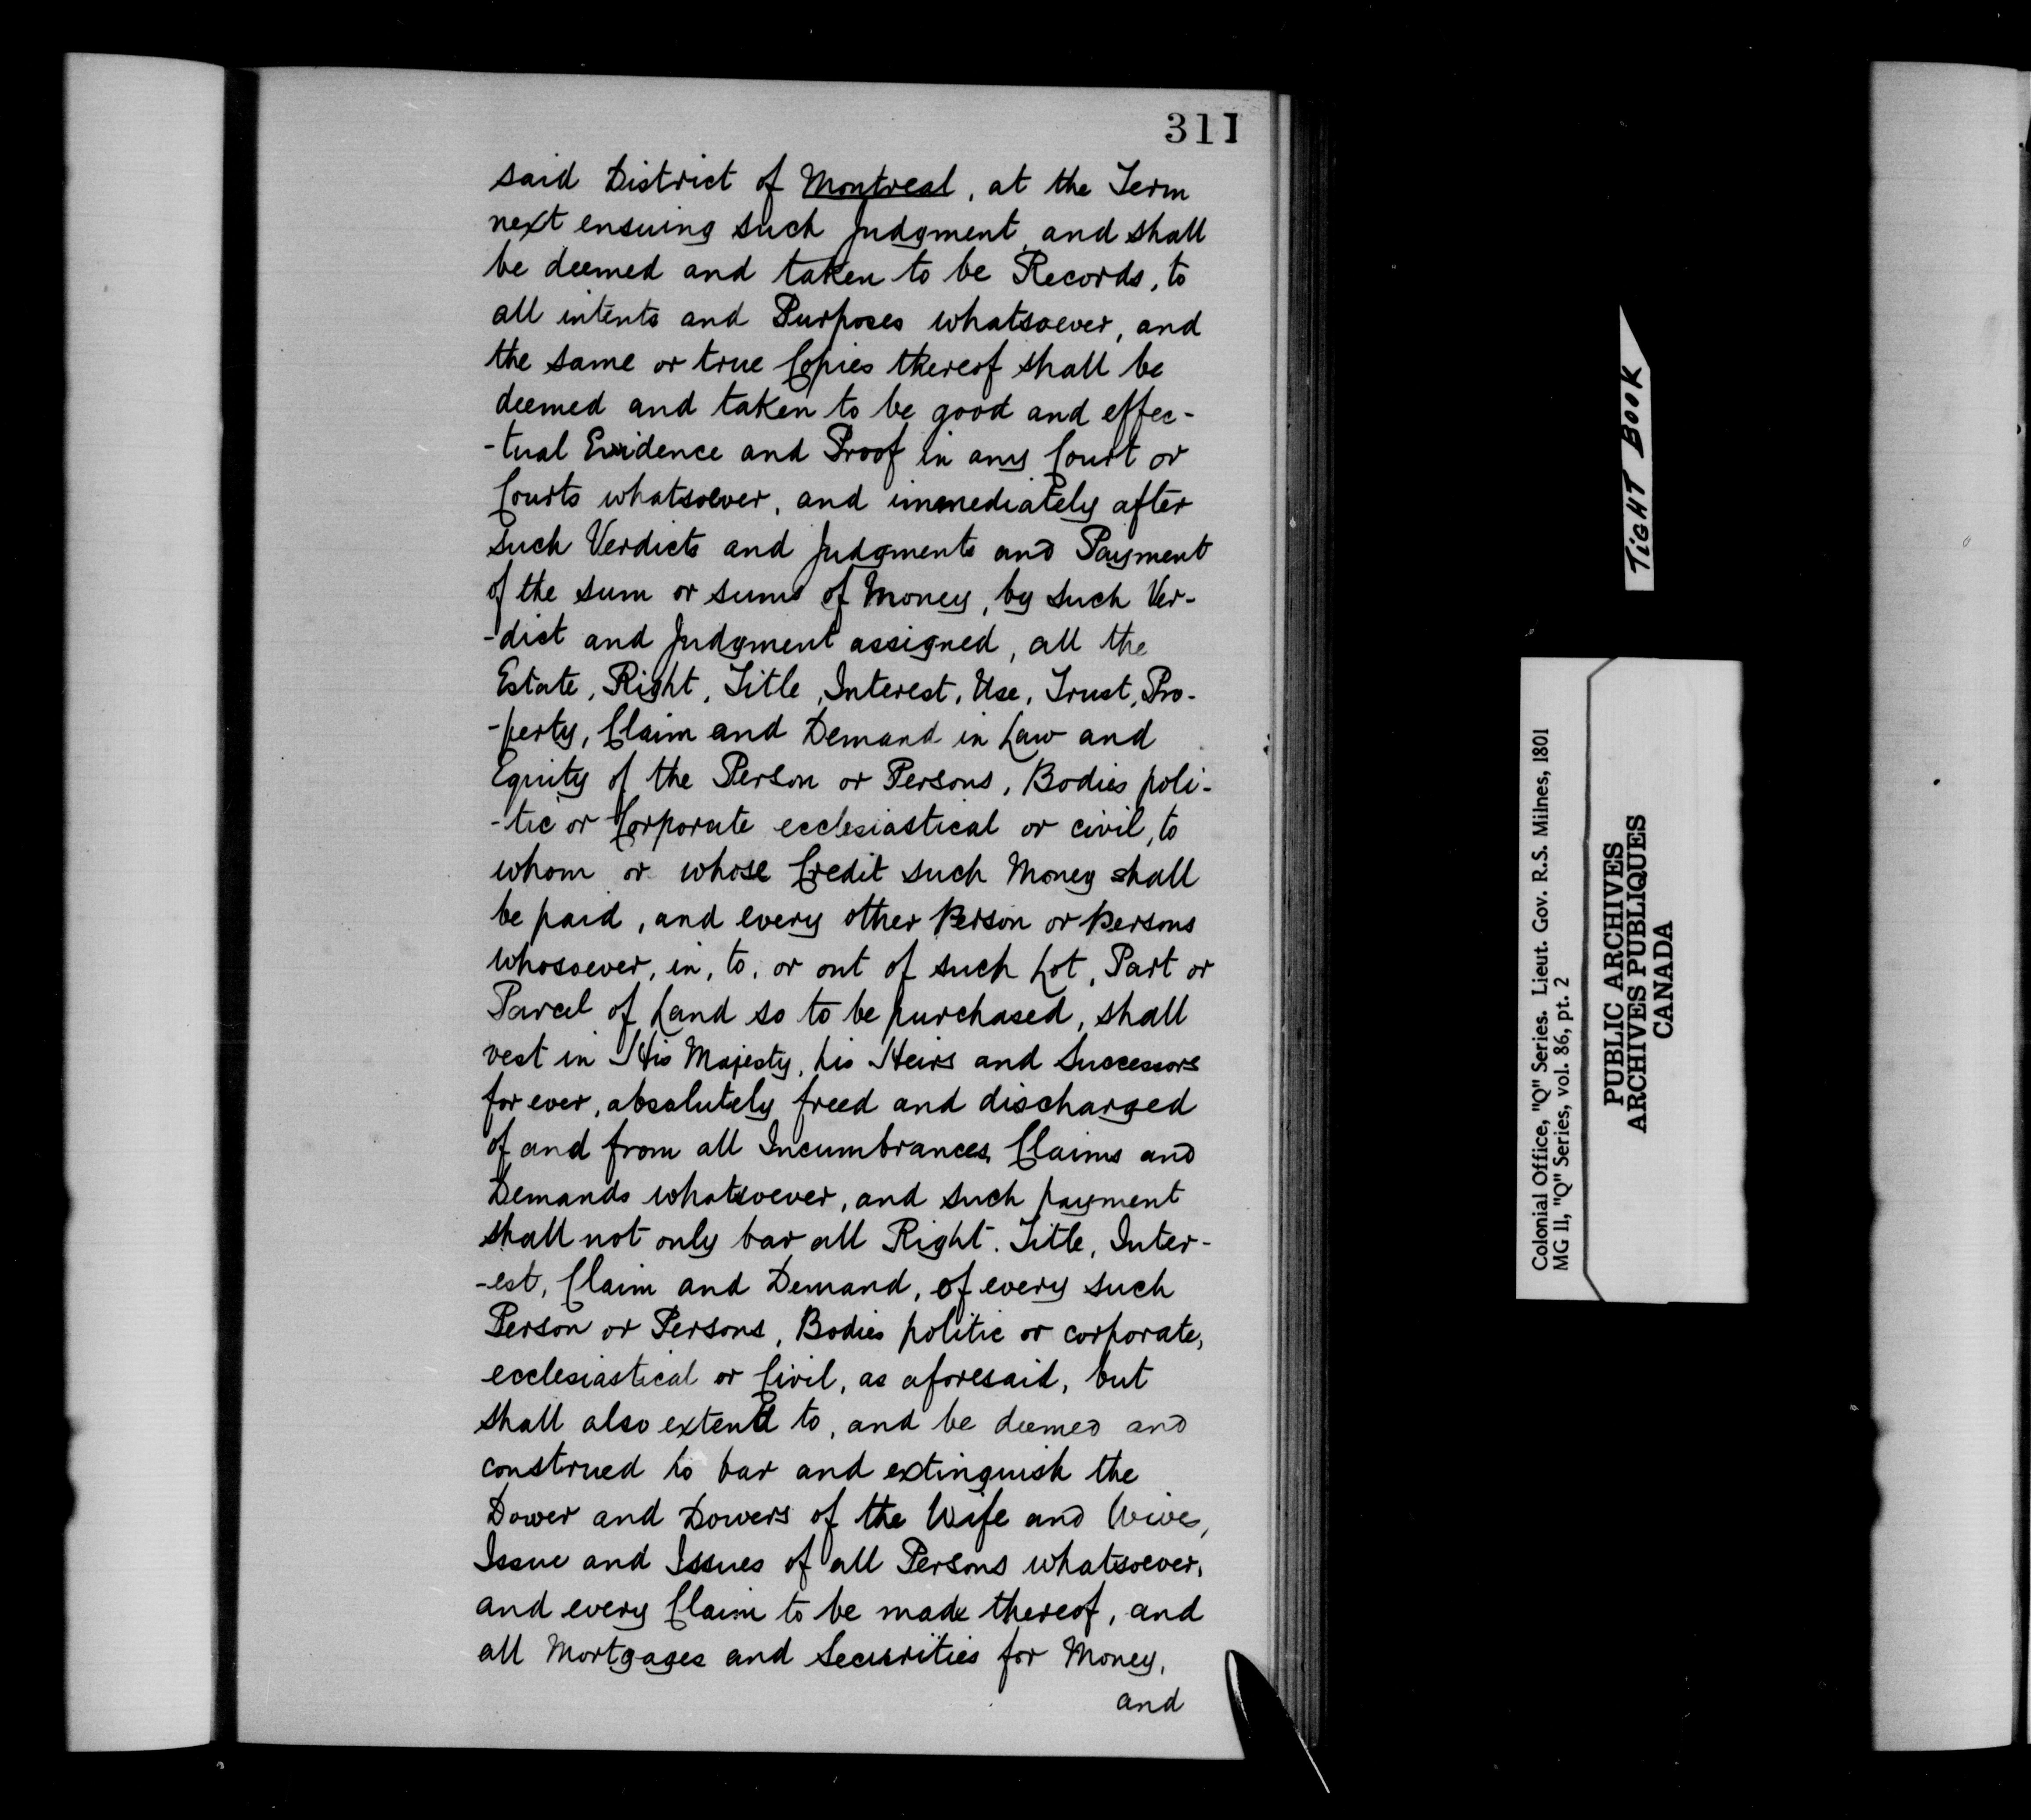 311
said District of Montreal, at the Term
next ensuing such Judgment, and shall
be deemed and taken to be Records, to
all intents and Purposes whatsoever, and
the same or true Copies thereof shall be
deemed and taken to be good and effec-
-tual Evidence and Proof in any Court or
Courts whatsoever, and immediately after
such Verdicts and Judgments and Payment
of the sum or sums of Money, by such Ver-
-dict and Judgment assigned, all the
Estate, Right, Title, Interest, Use, Trust, Pro-
-perty, Claim and Demand in Law and
Equity of the Person or Persons, Bodies poli-
-tic or Corporate ecclesiastical or civil, to
whom or whose Credit such Money shall
be paid, and every other Person or Persons
whosoever, in, to, or out of such Lot, Part or
Parcel of Land so to be purchased, shall
vest in His Majesty, his Heirs and Successors
for ever, absolutely freed and discharged
of and from all Incumbrances, Claims and
Demands whatsoever, and such payment
shall not only bar all Right. Title, Inter-
-est, Claim and Demand, of every such
Person or Persons, Bodies politic or corporate,
ecclesiastical or Civil, as aforesaid, but
shall also extend to, and be deemed and
construed to bar and extinguish the
Dower and Dowers of the Wife and Wives,
Issue and Issues of all Persons whatsoever,
and every Claim to be made thereof, and
all Mortgages and Securities for Money,
and
TIGHT BOOK
Colonial Office, "Q" Series. Lieut. Gov. R.S. Milnes, 1801
MG 11, "Q" Series, vol. 86, pt. 2
PUBLIC ARCHIVES
ARCHIVES PUBLIQUES
CANADA